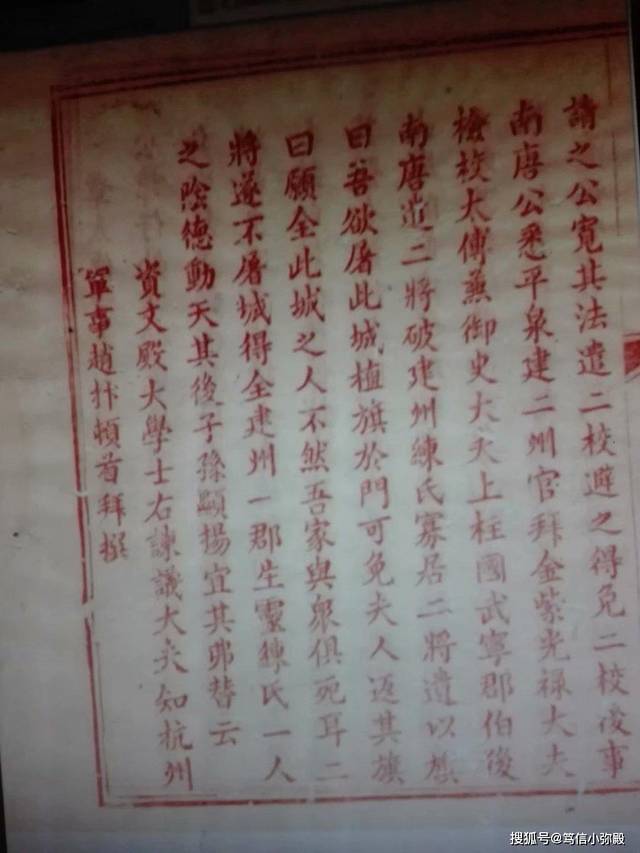 請之公寬其法遣二校避之得免二校後事
南唐公悉平泉建二州官拜金紫光祿大夫
檢校太傅兼御史大夫上柱國武寧郡伯後
南唐遣二將破建州練氏寡居二將遺以旗
曰吾欲屠此城植旗於門可免夫人返其旗
曰願全此城之人不然吾家與衆俱死耳二
將遂不屠城得全建州一郡生靈練氏一人
之陰德動天其後子孫顯揚宜其弗替云
資文殿大學士右諫議大夫知杭州
軍事趙抃頓首拜撰
搜狐号@笃信小弥殿